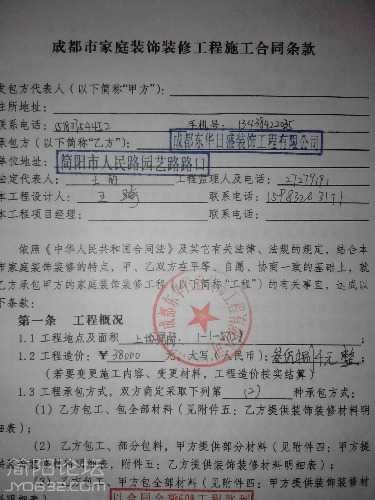 成都市家庭装饰装修工程施工合同条款
发包方代表人（以下简称“甲方”）：
住所地址：
联系电话： 手机号：
承包方（以下简称“乙方”）： 成都东华日盛装饰工程有限公司
单位地址： 简阳市人民路园艺路路口
法定代表人： 工程监理人及电话：
本工程设计人： 联系电话：
本工程项目经理： 联系电话：
依照《中华人民共和国合同法》及其它有关法律、法规的规定，结合本
市家庭装饰装修的特点，甲、乙双方在平等、自愿、协商一致的基础上，就
乙方承包甲方的家庭装饰装修工程（以下简称“工程”）的有关事宜，达成以
下条款：
第一条 工程概况
1.1 工程地点及面积
1.2 工程造价：¥ 38000 元；大写（人民币）：叁万捌仟元整
（若要变更施工内容、变更材料，工程造价按实结算）
1.3 工程承包方式，双方商定采取下列第 (2) 种承包方式：
（1）乙方包工、包全部材料（见附件四；乙方提供装饰装修材料明
细表）；
（2）乙方包工、部分包料，甲方提供部分材料（见附件四：甲方提
供装饰装修材料明细表、附件五：乙方提供装饰装修材料明细表）；
（3）乙方包工、甲方包全部材料（见附件四：甲方提供装饰装修
以合同全额60%工程款
简阳论坛
JY0832.COM